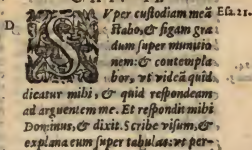 D SVper custodiam meã Esa.21.
stabo, & figam gra
dum super munitio
nem: & contempla
bor, vt videã quid
dicatur mihi, & quid respondeam
ad arguentem me. Et respondit mihi
Dominus, & dixit. Scribe visum, &
explana eum super tabulas: vt per-